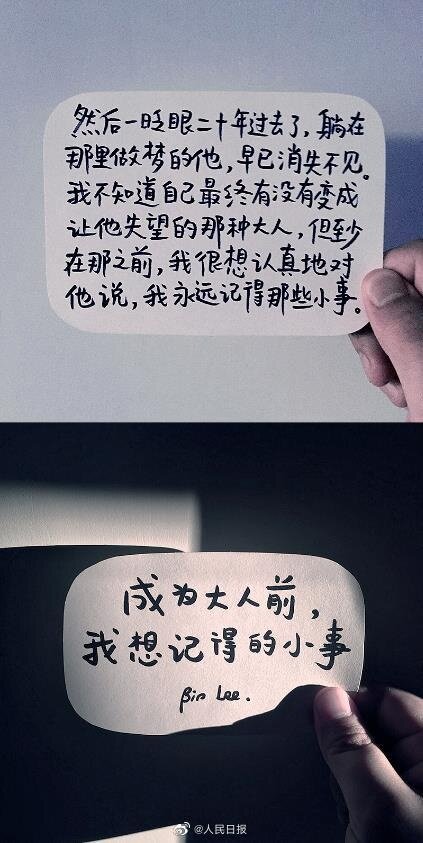 然后一眨眼二十年过去了，躺在
那里做梦的他，早已消失不见。
我不知道自己最终有没有变成
让他失望的那种大人，但至少
在那之前，我很想认真地对
他说，我永远记得那些小事。
成为大人前，
我想记得的小事
Bin Lee.
@人民日报